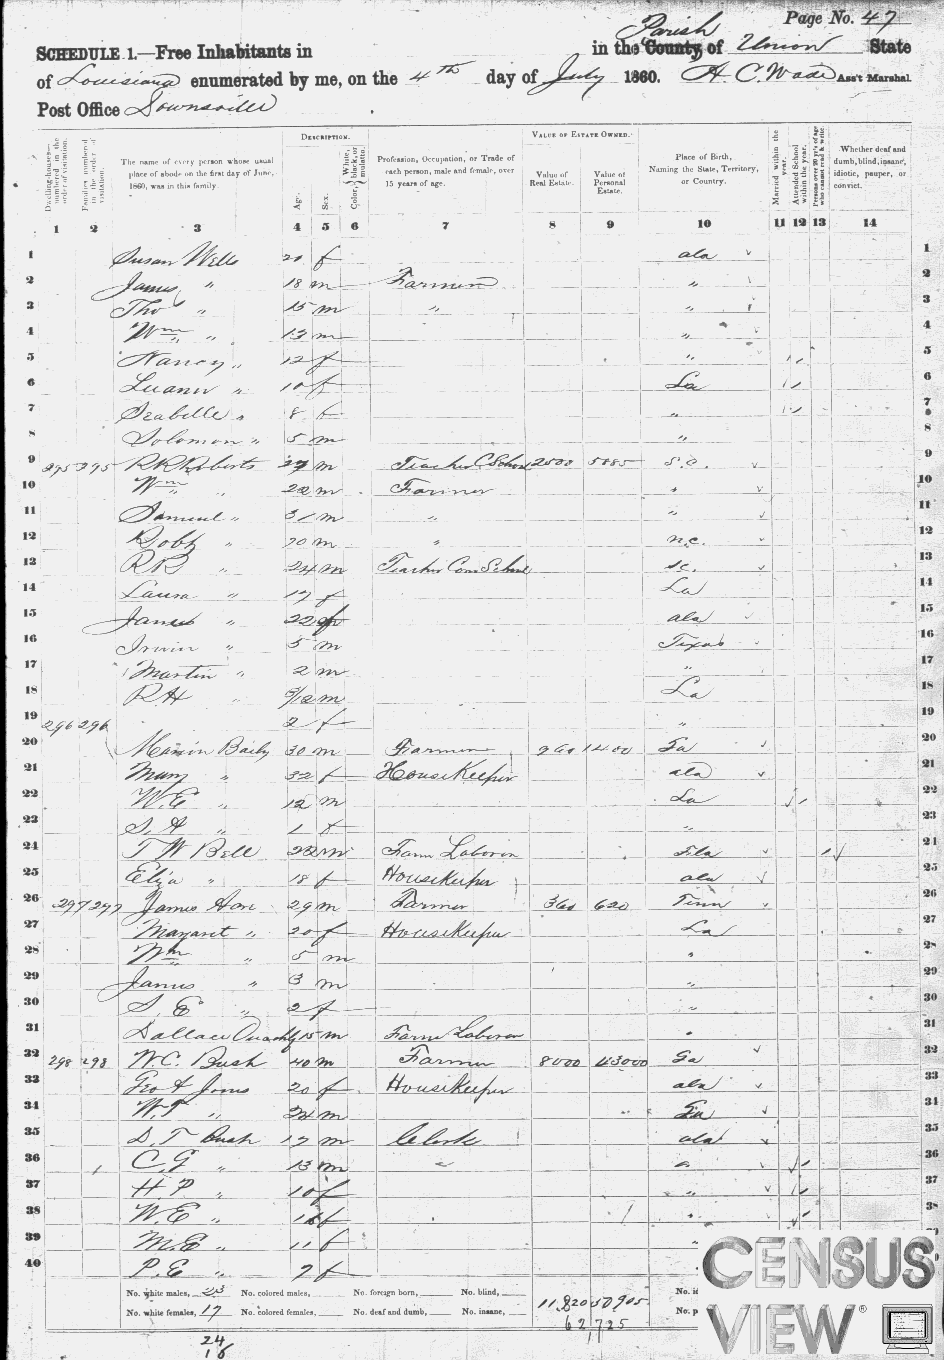 Page No. 47
SCHEDULE 1.—Free Inhabitants in in the County Parish of Union State
of Louisiana enumerated by me, on the 4th day of July 1860. A. C. Wade Ass't Marshal
Post Office Downsville
DESCRIPTION. VALUE OF ESTATE OWNED.
Dwelling-houses—numbered in the order of visitation. Families numbered in the order of visitation. The name of every person whose usual place of abode on the first day of June, 1860, was in this family. Age. Sex. Color, White, black, or mulatto. Profession, Occupation, or Trade of each person, male and female, over 15 years of age. Value of Real Estate. Value of Personal Estate. Place of Birth, Naming the State, Territory, or Country. Married within the year. Attended School within the year. Persons over 20 y'rs of age who cannot read & write. Whether deaf and dumb, blind, insane, idiotic, pauper, or convict.
1 2 3 4 5 6 7 8 9 10 11 12 13 14
1 Susan Wells f ala 1
2 James " 18 m Farmer " 2
3 Tho " 15 m " " 3
4 Wm " 13 m " 4
5 Nancy " 12 f " 5
6 Luann " 10 f La 6
7 Isabelle " 8 f " 7
8 Solomon " 5 m " 8
9 295 295 R R Roberts m Teacher C School 2500 S.C. 9
10 Wm " 22 m Farmer " 10
11 Samuel " m " " 11
12 " m " n.c. 12
13 R B " 24 m Teacher Com School S.C. 13
14 Laura " 17 f La 14
15 James " 22 ala 15
16 Irwin " 5 m Texas 16
17 Martin " 2 m " 17
18 R H " 3/12 m La 18
19 296 296 2 f " 19
20 Marion Baily 30 m Farmer 1400 Ga 20
21 Mary " 32 f HouseKeeper ala 21
22 W. E " 12 m La 22
23 S. A " 1 f " 23
24 T W Bell m Farm Laborer Fla 24
25 Eliza " 18 f HouseKeeper ala 25
26 297 297 James 29 m Farmer 360 620 Tenn 26
27 Margaret " 20 f HouseKeeper La 27
28 Wm " 5 m " 28
29 James " 3 m " 29
30 S. E " 2 f " 30
31 15 m Farm Laborer " 31
32 298 298 W. C. Bush 40 m Farmer 8000 43000 Ga 32
33 Geo A Jones 20 f HouseKeeper ala 33
34 W. T " 24 m Ga 34
35 D. T Bush 17 m Clerk ala 35
36 C. G " 13 m " " 36
37 H. P " 10 f " 37
38 W. E " f " 38
39 M. E " 11 f " 39
40 P. E " 7 f
No. white males, 23 No. colored males, No. foreign born, No. blind,
No. white females, 17 No. colored females, No. deaf and dumb, No. insane,
24
16
CENSUS
VIEW ®